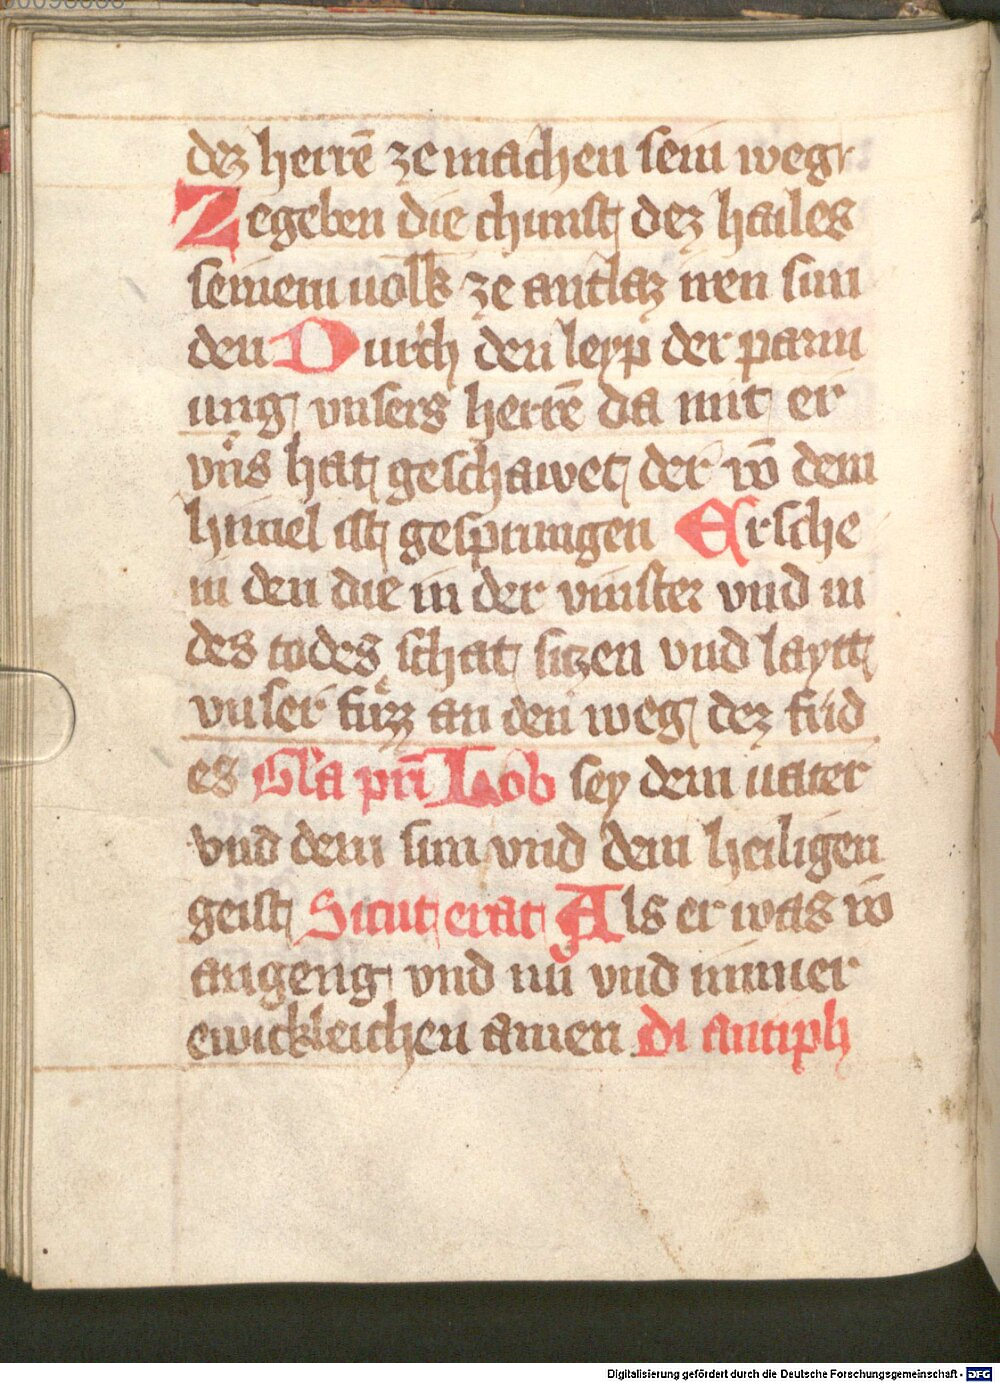 dez herrē ze machen sein weg
Zegeben die chunst dez hailes
seinem uolk ze antlaz iren sun
den Durch den leyp der parm
ung vnsers herrē da mit er
vns hat geschawet der vō dem
himel ist gesprungen Ersche
in den die in der vinster vnd in
des todes schat sitzen vnd laytt
vnser fuͤzz an den weg dez frid
es Gl'a pr̄i Lob sey dem uater
vnd dem sun vnd dem heiligen
geist Sicut erat Als er was vō
angeng vnd nu vnd immer
ewickleichen amen Di antiph
Digitalisierung gefördert durch die Deutsche Forschungsgemeinschaft - DFG